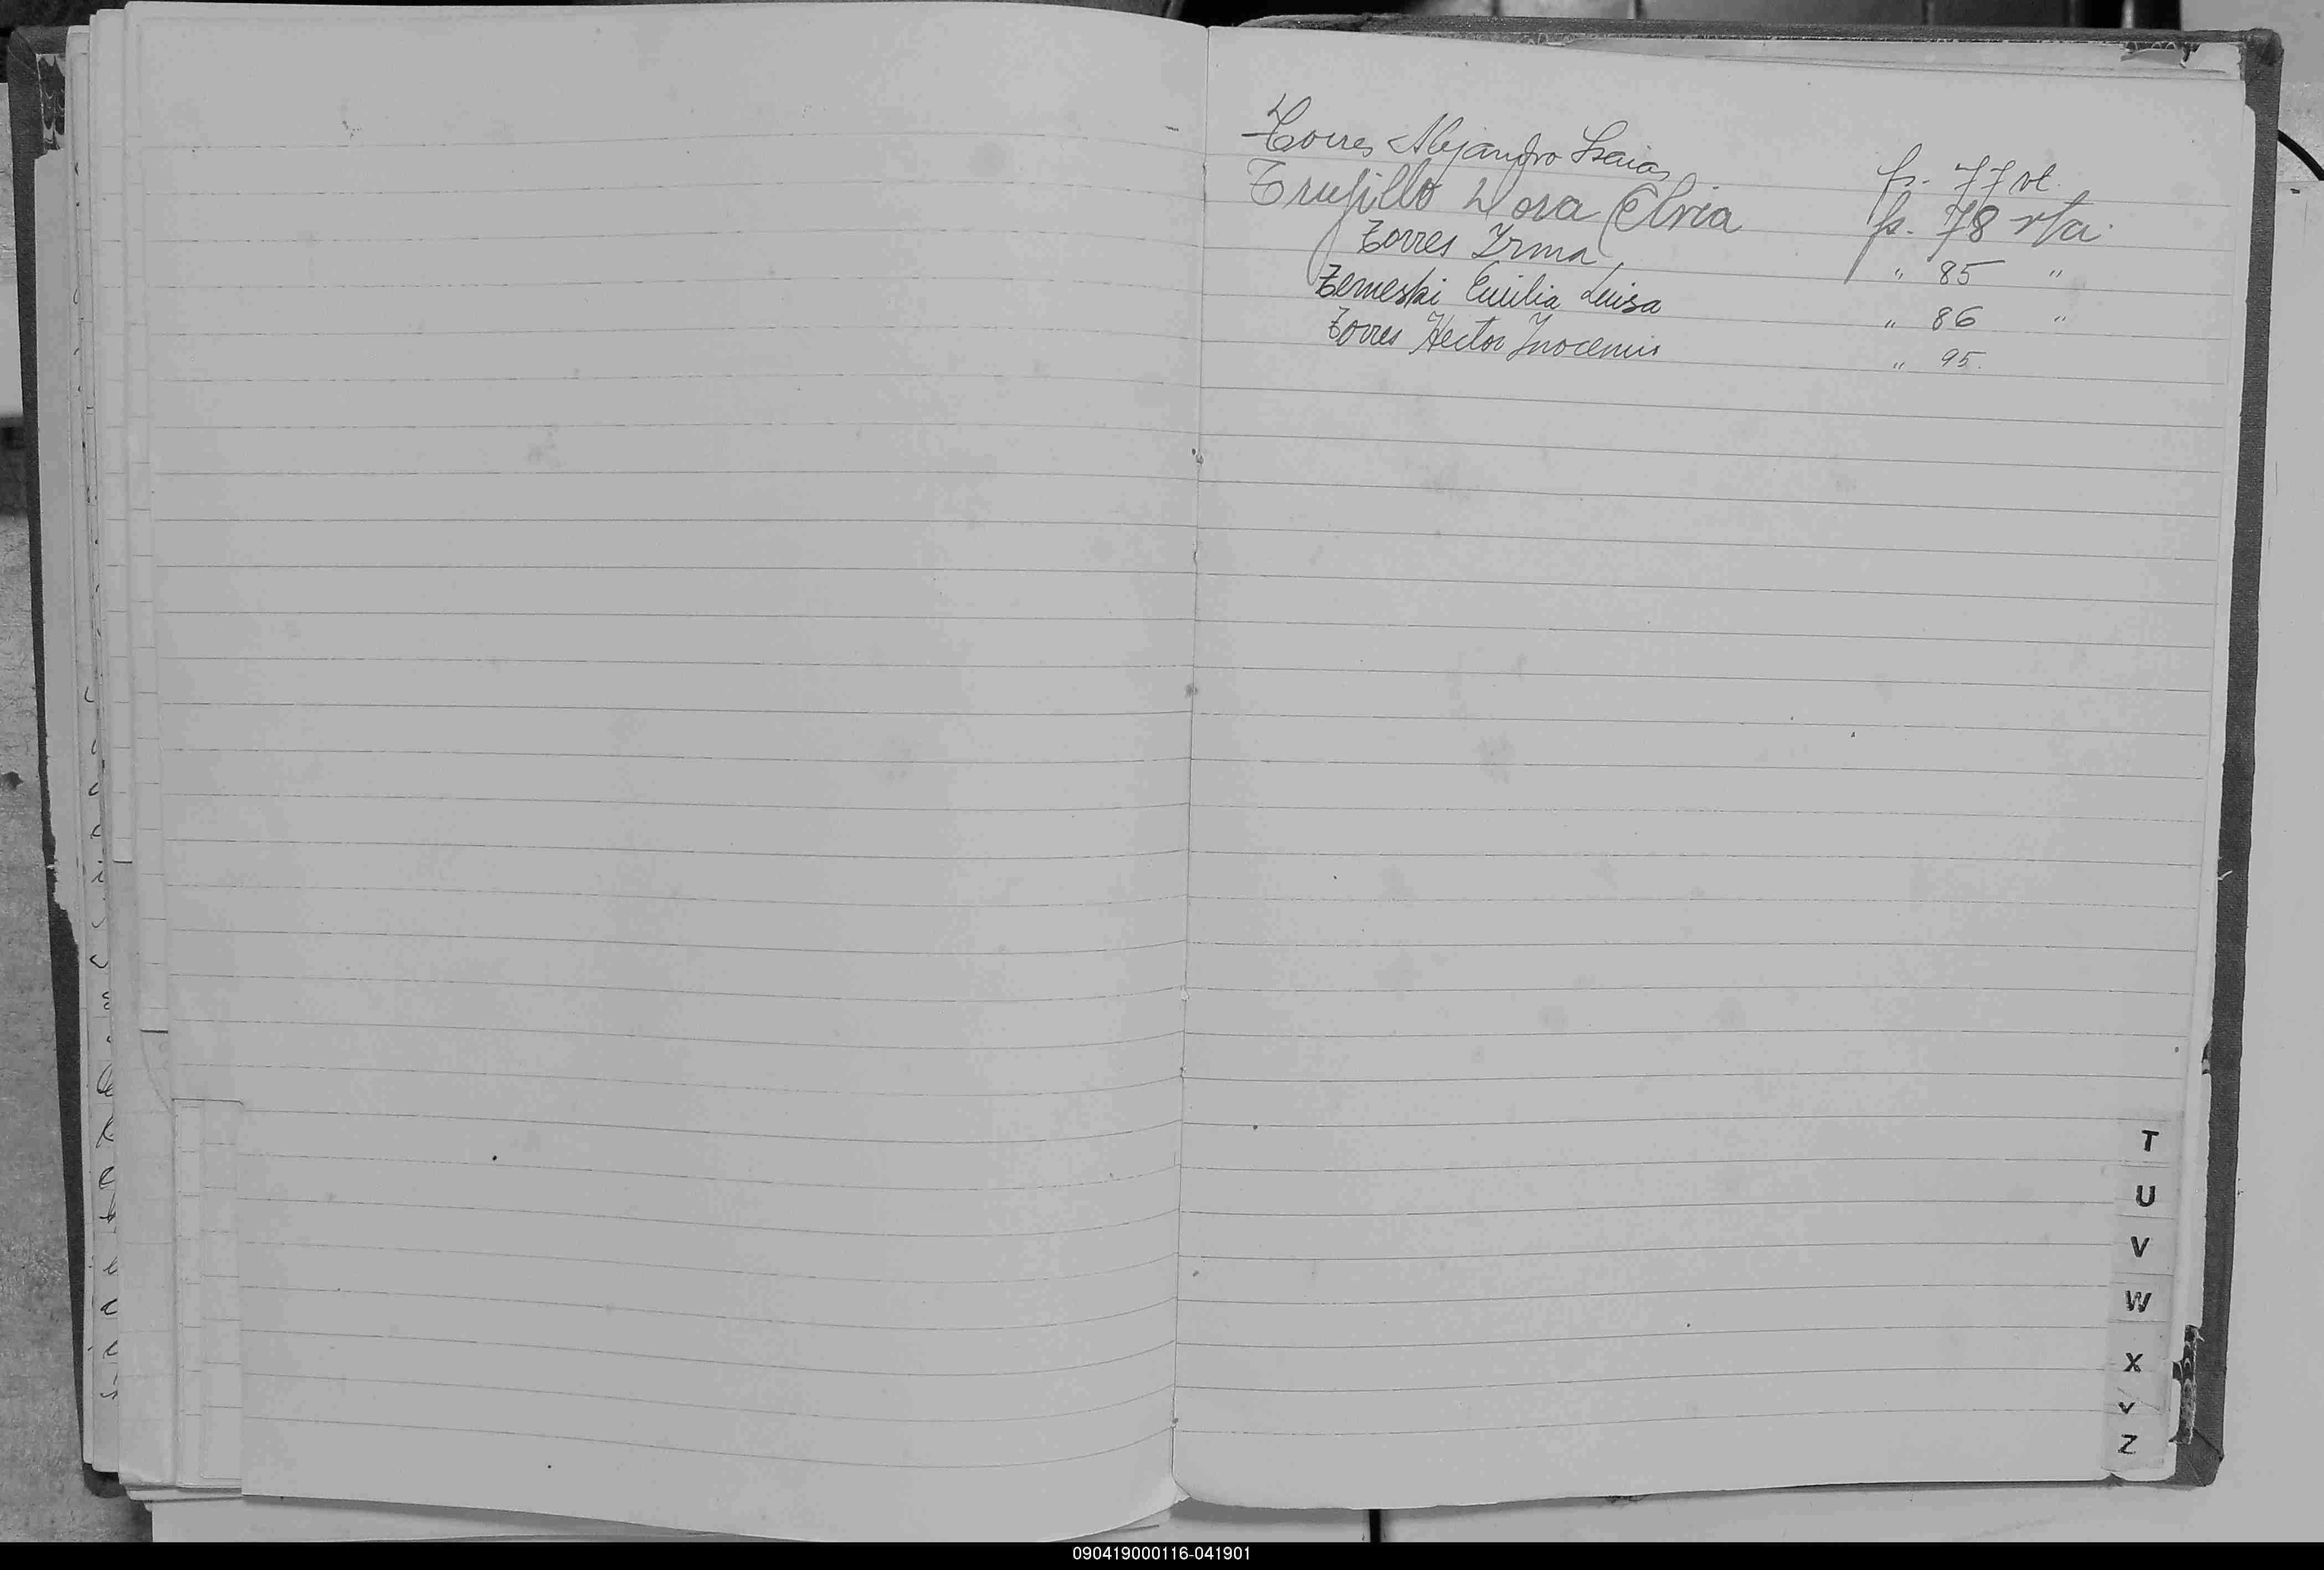 Torres Alejandro Isaias fs. 77 vt.
Trujillo Dora Elvia fs. 78 vta.
Torres Irma " 85 "
Temeski Emilia Luisa " 86 "
Torres Hector Inocencio " 95.
T
U
V
W
X
Y
Z
090419000116-041901